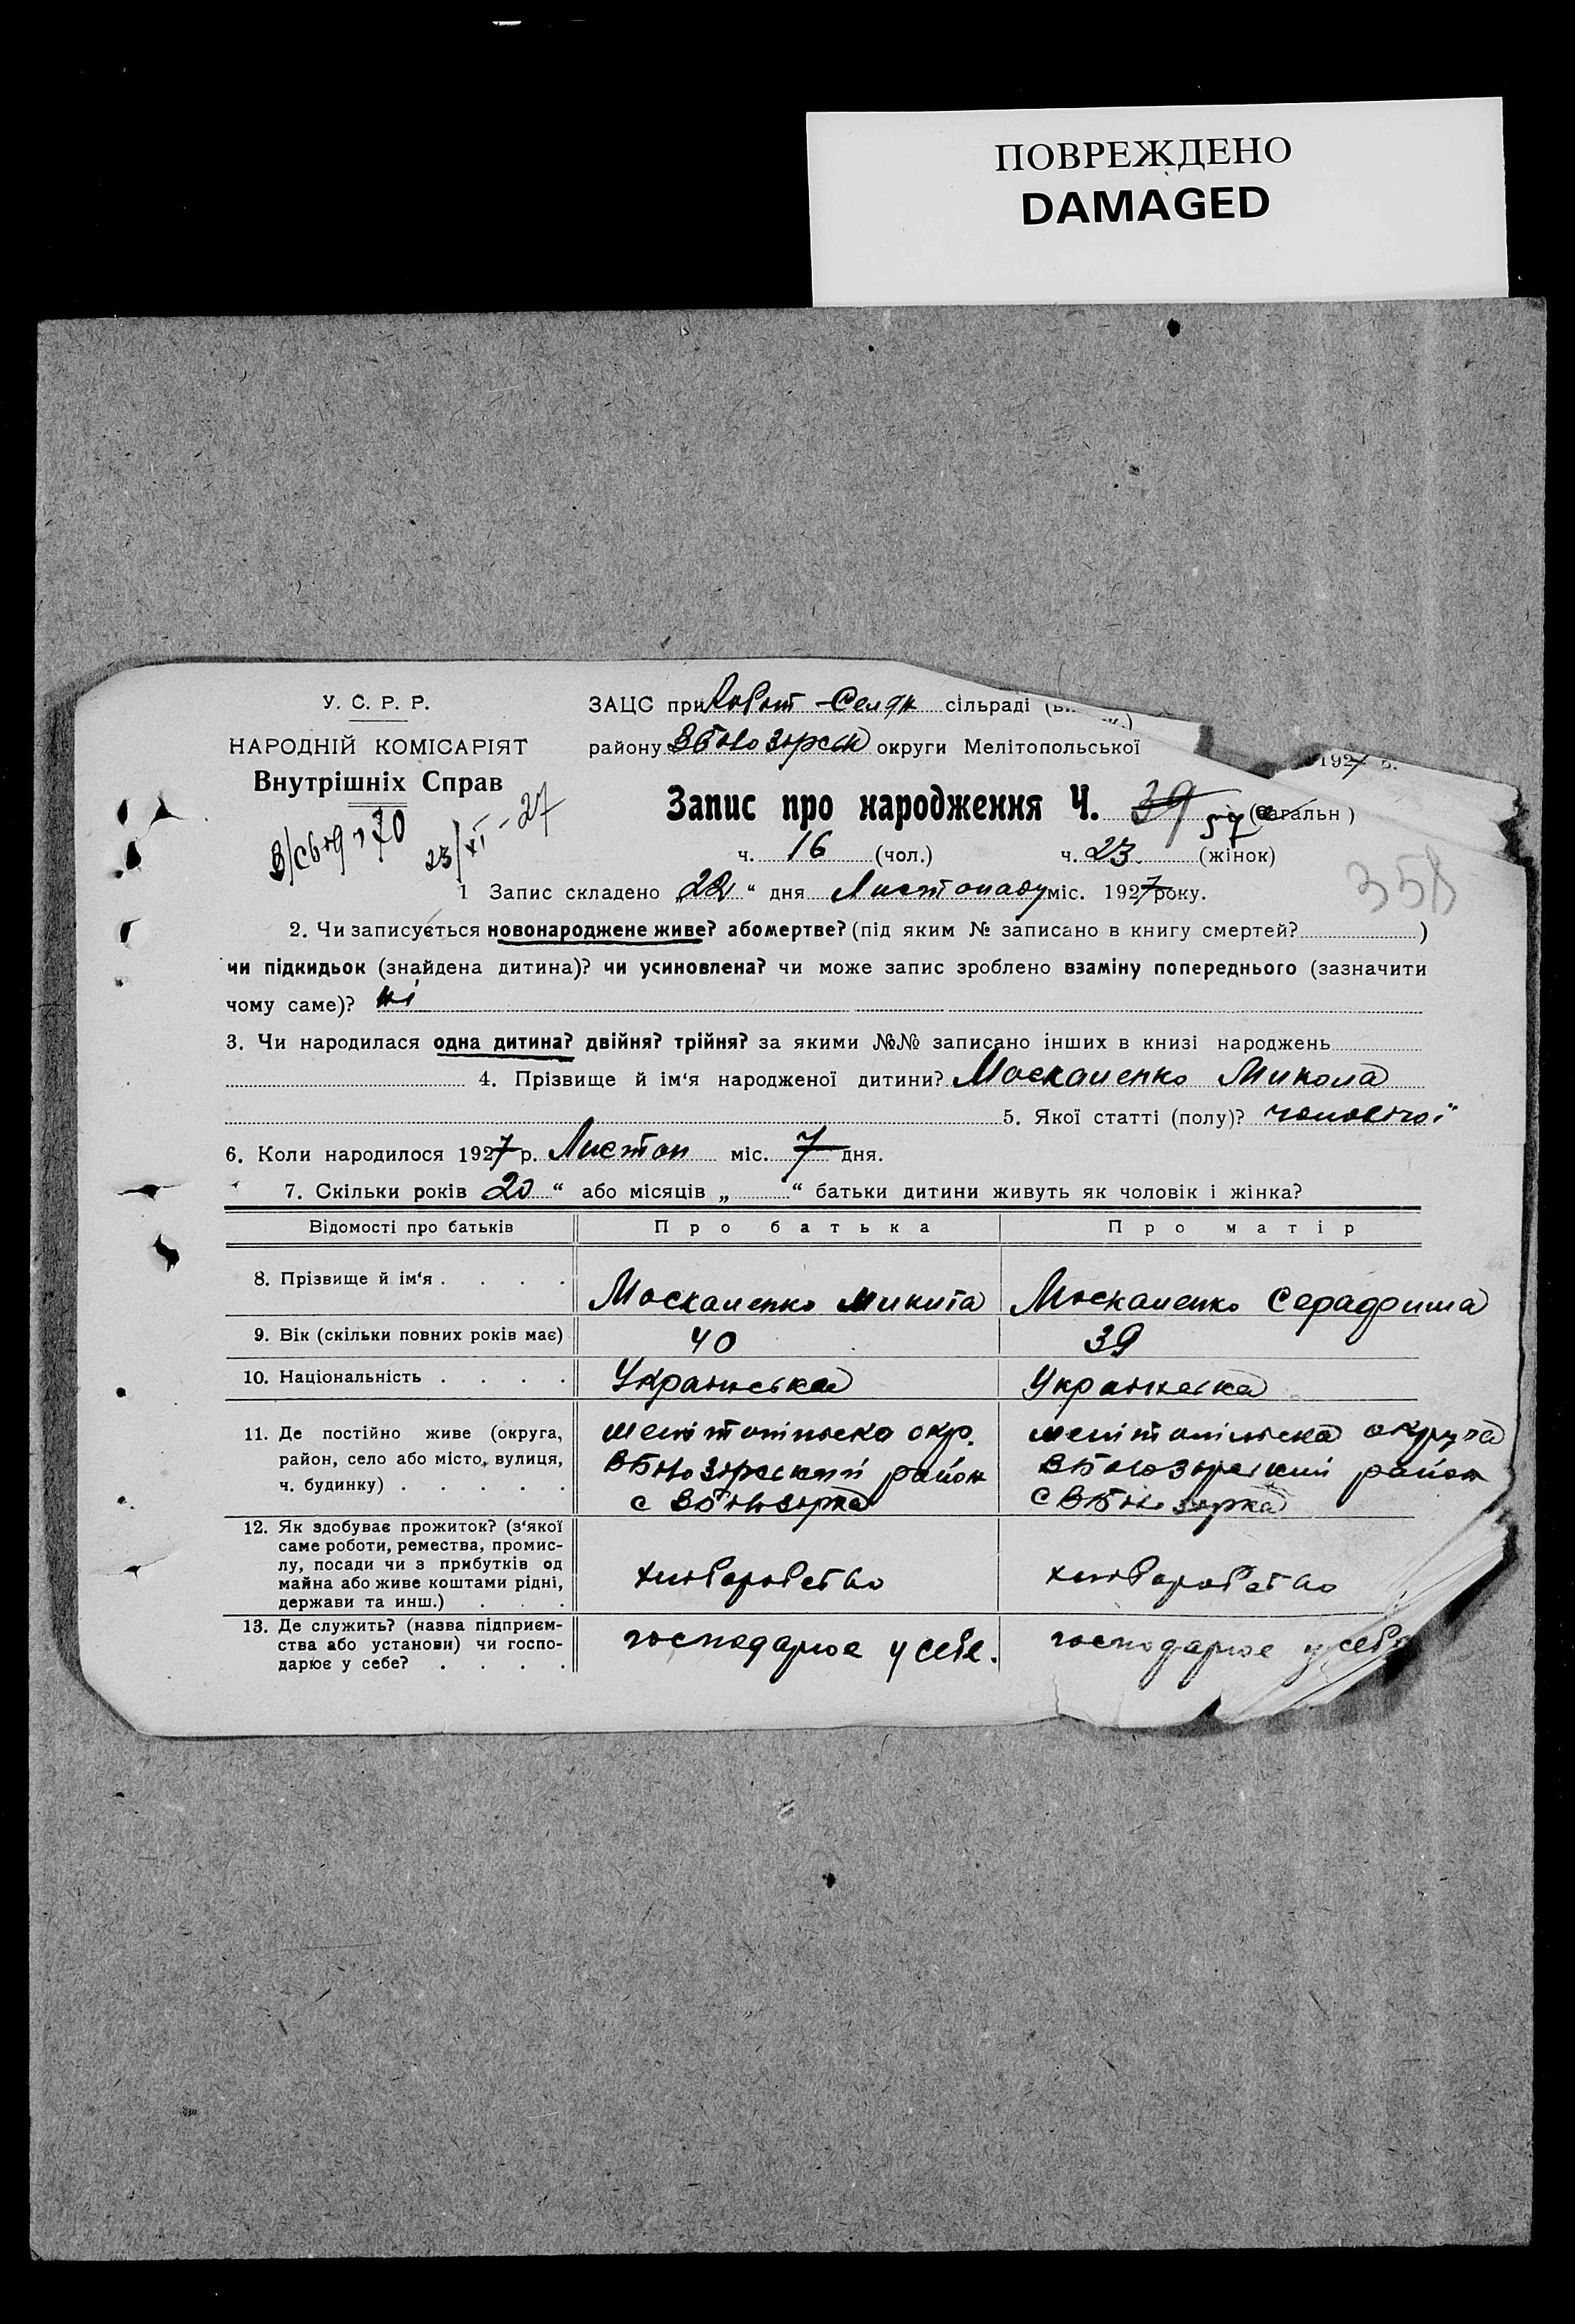 ПОВРЕЖДЕНО
DAMAGED
У. С. Р. Р.
НАРОДНІЙ КОМІСАРІЯТ
Внутрішніх Справ
23/XI - 27
ЗАЦС при сільраді
району Вбілозірськ округи Мелітопольської
1927 р.
Запис про народження Ч. 39 57 (загальн )
ч. 16 (чол.) ч. 23. (жінок)
358
1 Запис складено „22“ дня Листопаду міс. 1927 року.
2. Чи записується новонароджене живе? або мертве? (під яким № записано в книгу смертей? )
чи підкидьок (знайдена дитина)? чи усиновлена? чи може запис зроблено взаміну попереднього (зазначити
чому саме)? ні
3. Чи народилася одна дитина? двійня? трійня? за якими №№ записано інших в книзі народжень
4. Прізвище й ім‘я народженої дитини? Москаленко Микола
5. Якої статті (полу)? чоловічої
6. Коли народилося 1927 р. Листоп міс. 7 дня.
7. Скільки років 20 “ або місяців „ “ батьки дитини живуть як чоловік і жінка?
Відомості про батьків Про батька Про матір
8. Прізвище й ім‘я . . . . Москаленко Микита Москаленко Серафима
9. Вік (скільки повних років має) 40 39
10. Національність . . . . Українська Українська
11. Де постійно живе (округа, район, село або місто, вулиця, ч. будинку) . . . . .
мелітопільска окр. мелітопільска округа
Вбілозірський район Вбілозірський район
с Вбілозірка с Вбілозірка
12. Як здобуває прожиток? (з‘якої
саме роботи, ремества, промис-
лу, посади чи з прибутків од
майна або живе коштами рідні,
держави та инш.) . . .
хліборобство хліборобство
13. Де служить? (назва підприєм-
ства або установи) чи госпо-
дарює у себе? . . . .
господарює у себе. господарює у себе